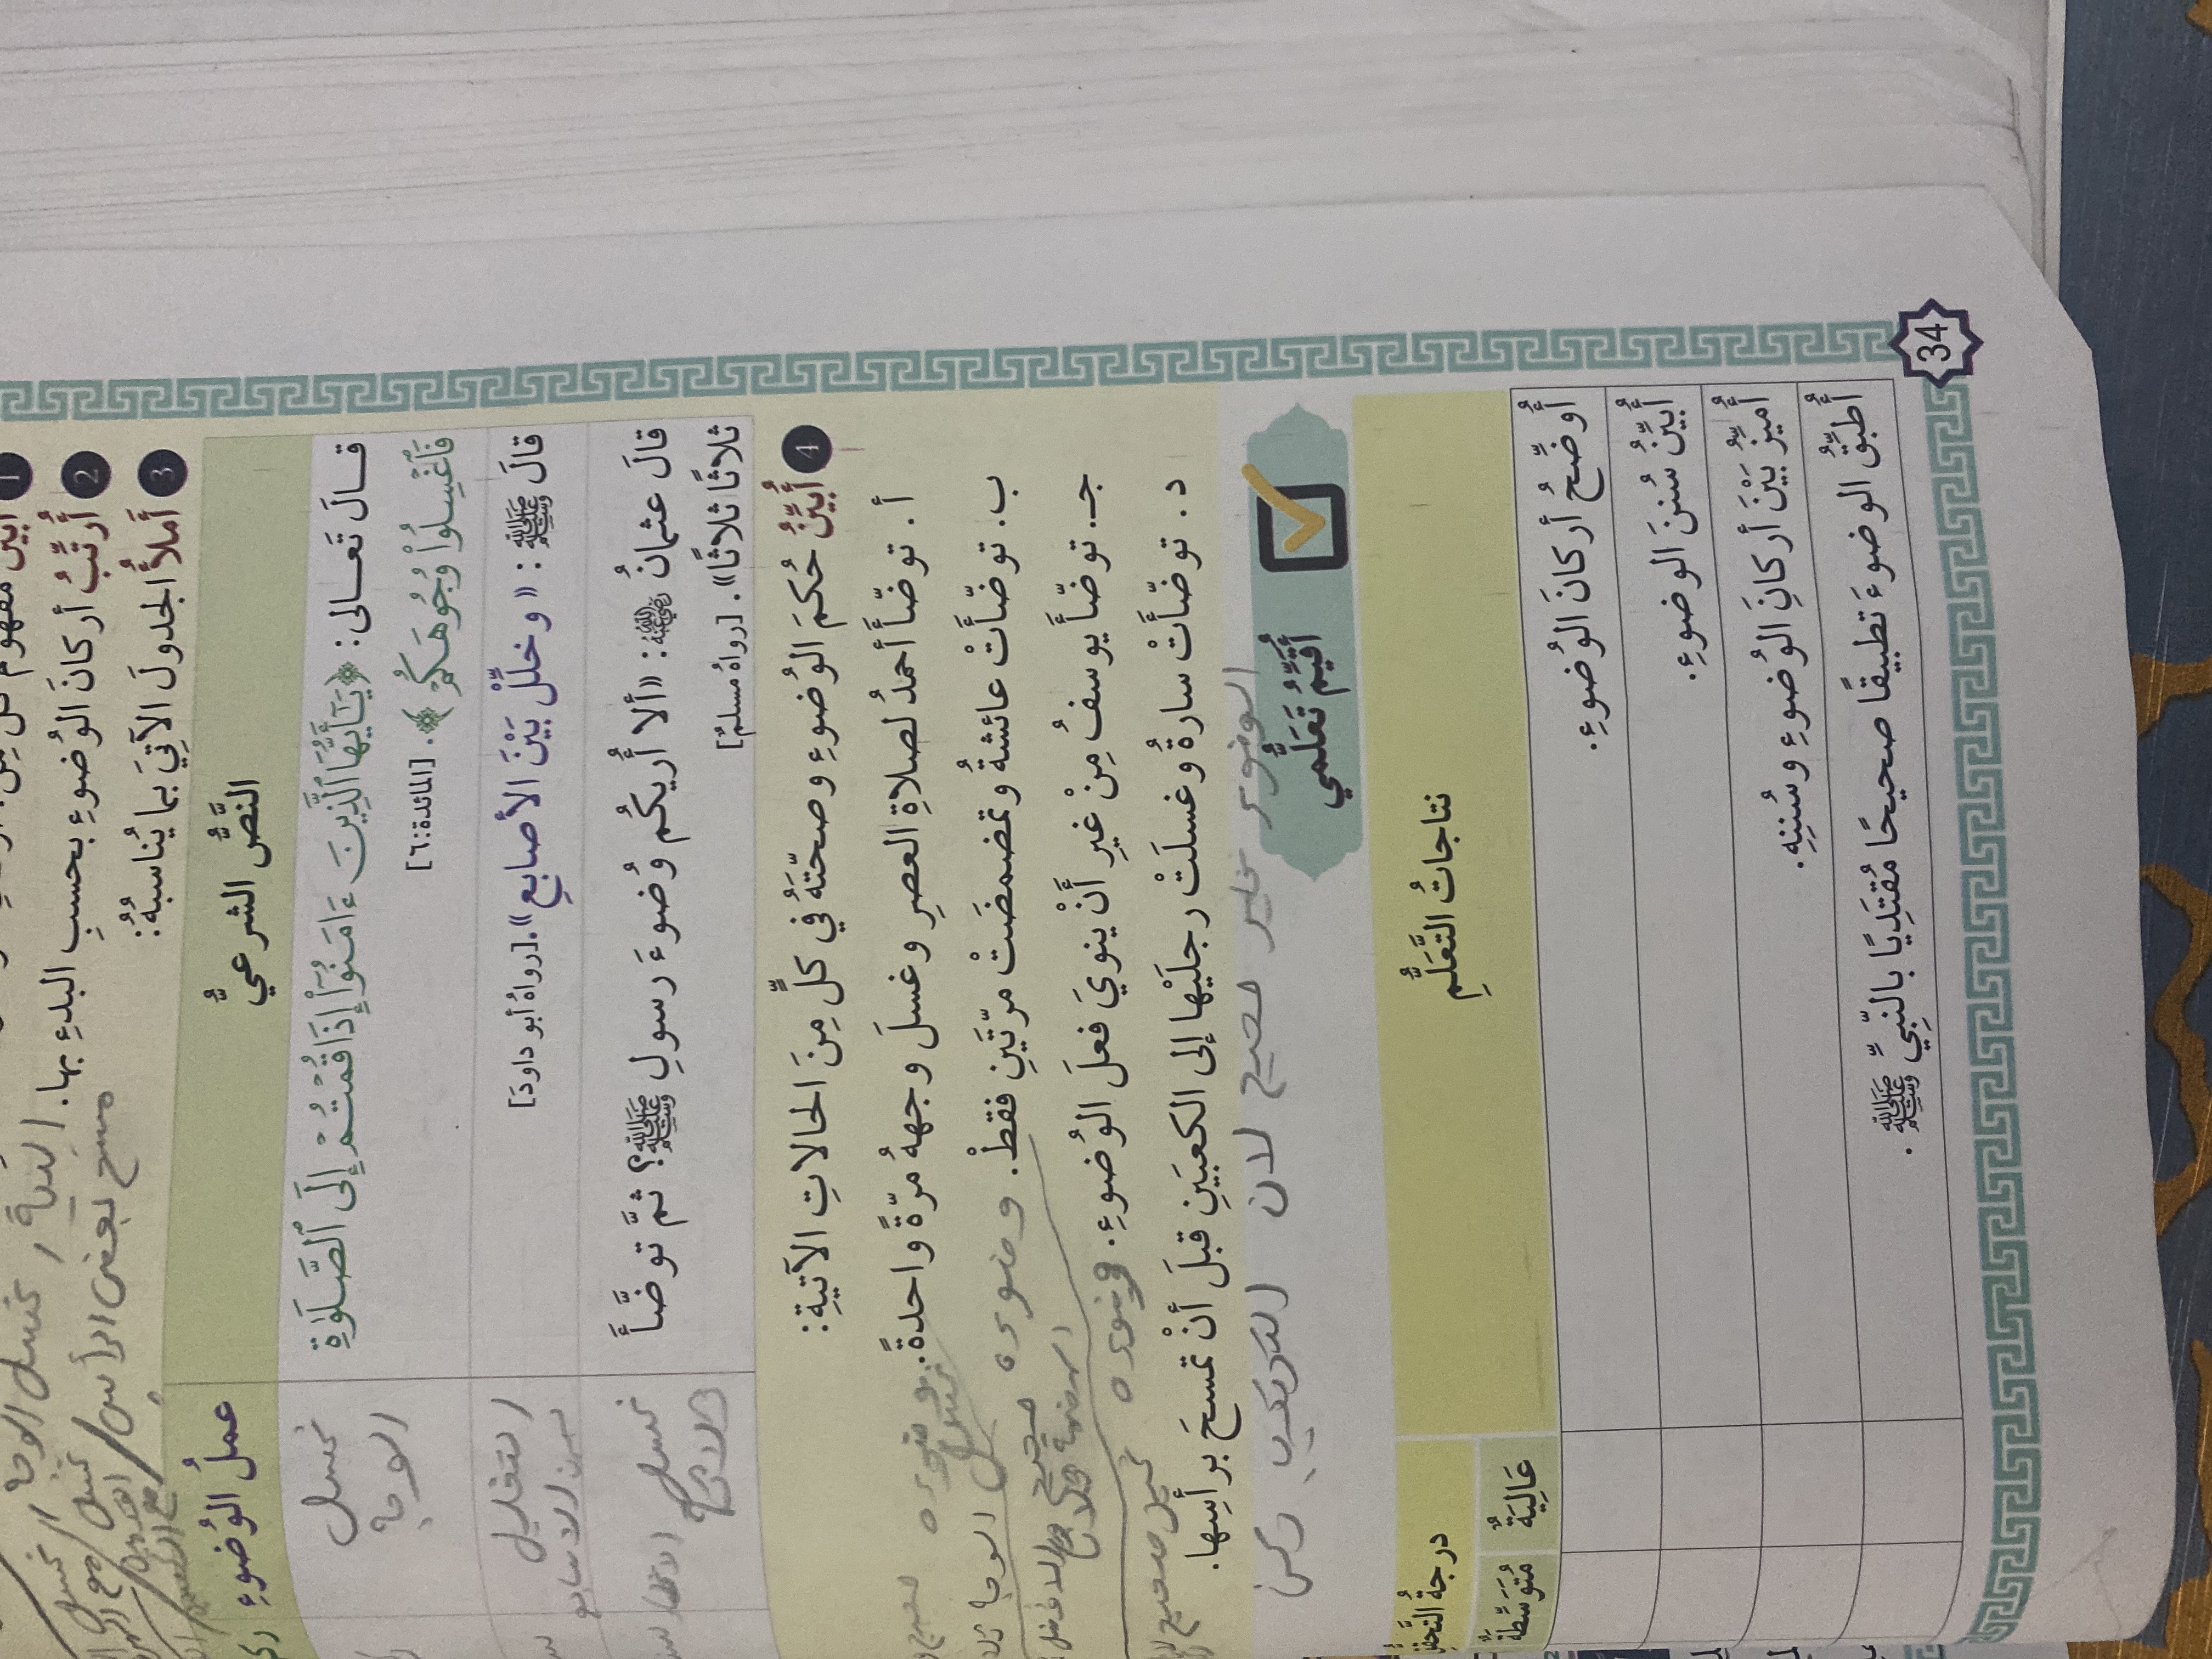 1 أبين مفهوم كل من
2 أُرَتِّبُ أركانَ الوُضوءِ بحسبِ البدءِ بها. النية، غسل الوجه
مسح بعض الرأس
3 أَملَأُ الجدولَ الآتِيَ بما يُناسبُهُ:
النَّصُّ الشرعيُّ
عملُ الوُضوءِ
قالَ تَعالى: ﴿يَٰٓأَيُّهَا ٱلَّذِينَ ءَامَنُوٓا۟ إِذَا قُمْتُمْ إِلَى ٱلصَّلَوٰةِ
فَٱغْسِلُوا۟ وُجُوهَكُمْ﴾. [المائدة:٦]
غسل
الوجه
قالَ ﷺ: «وخلِّلْ بَيْنَ الأصابعِ».[رواهُ أبو داودَ]
التخليل
بين الاصابع
قالَ عثمانُ رضي الله عنه: «ألا أُريكُم وُضوءَ رسولِ ﷺ؟ ثمَّ توضَّأَ
ثلاثًا ثلاثًا». [رواهُ مسلمٌ]
غسل
ثلاث
4 أُبَيِّنُ حُكمَ الوُضوءِ وصحّتَهُ في كلٍّ مِنَ الحالاتِ الآتيةِ:
أ. توضّأَ أحمدُ لصلاةِ العصرِ وغسلَ وجههُ مرّةً واحدةً. وضوءه
غسل الوجه
ب. توضّأَتْ عائشةُ وتمضمضَتْ مرّتَينِ فقطْ. وضوءه
صحيح
جـ. توضّأَ يوسفُ مِنْ غيرِ أنْ ينويَ فعلَ الوُضوءِ. وضوءه
غير صحيح
د. توضّأَتْ سارةُ وغسلَتْ رجلَيْها إلى الكعبَينِ قبلَ أنْ تمسحَ برأسِها.
الوضوء غير صحيح لان الترتيب ركن
أُقيِّمُ تَعَلُّمي
نتاجاتُ التَّعَلُّمِ
درجةُ التَّحقُّقِ
عَالِيَةٌ
مُتَوَسِّطَةٌ
أُوضِّحُ أركانَ الوُضوءِ.
أُبيِّنُ سُننَ الوضوءِ.
أُميِّزُ بَيْنَ أركانِ الوُضوءِ وسُننِهِ.
أُطبِّقُ الوضوءَ تطبيقًا صحيحًا مُقتَدِيًا بالنّبيِّ ﷺ.
34